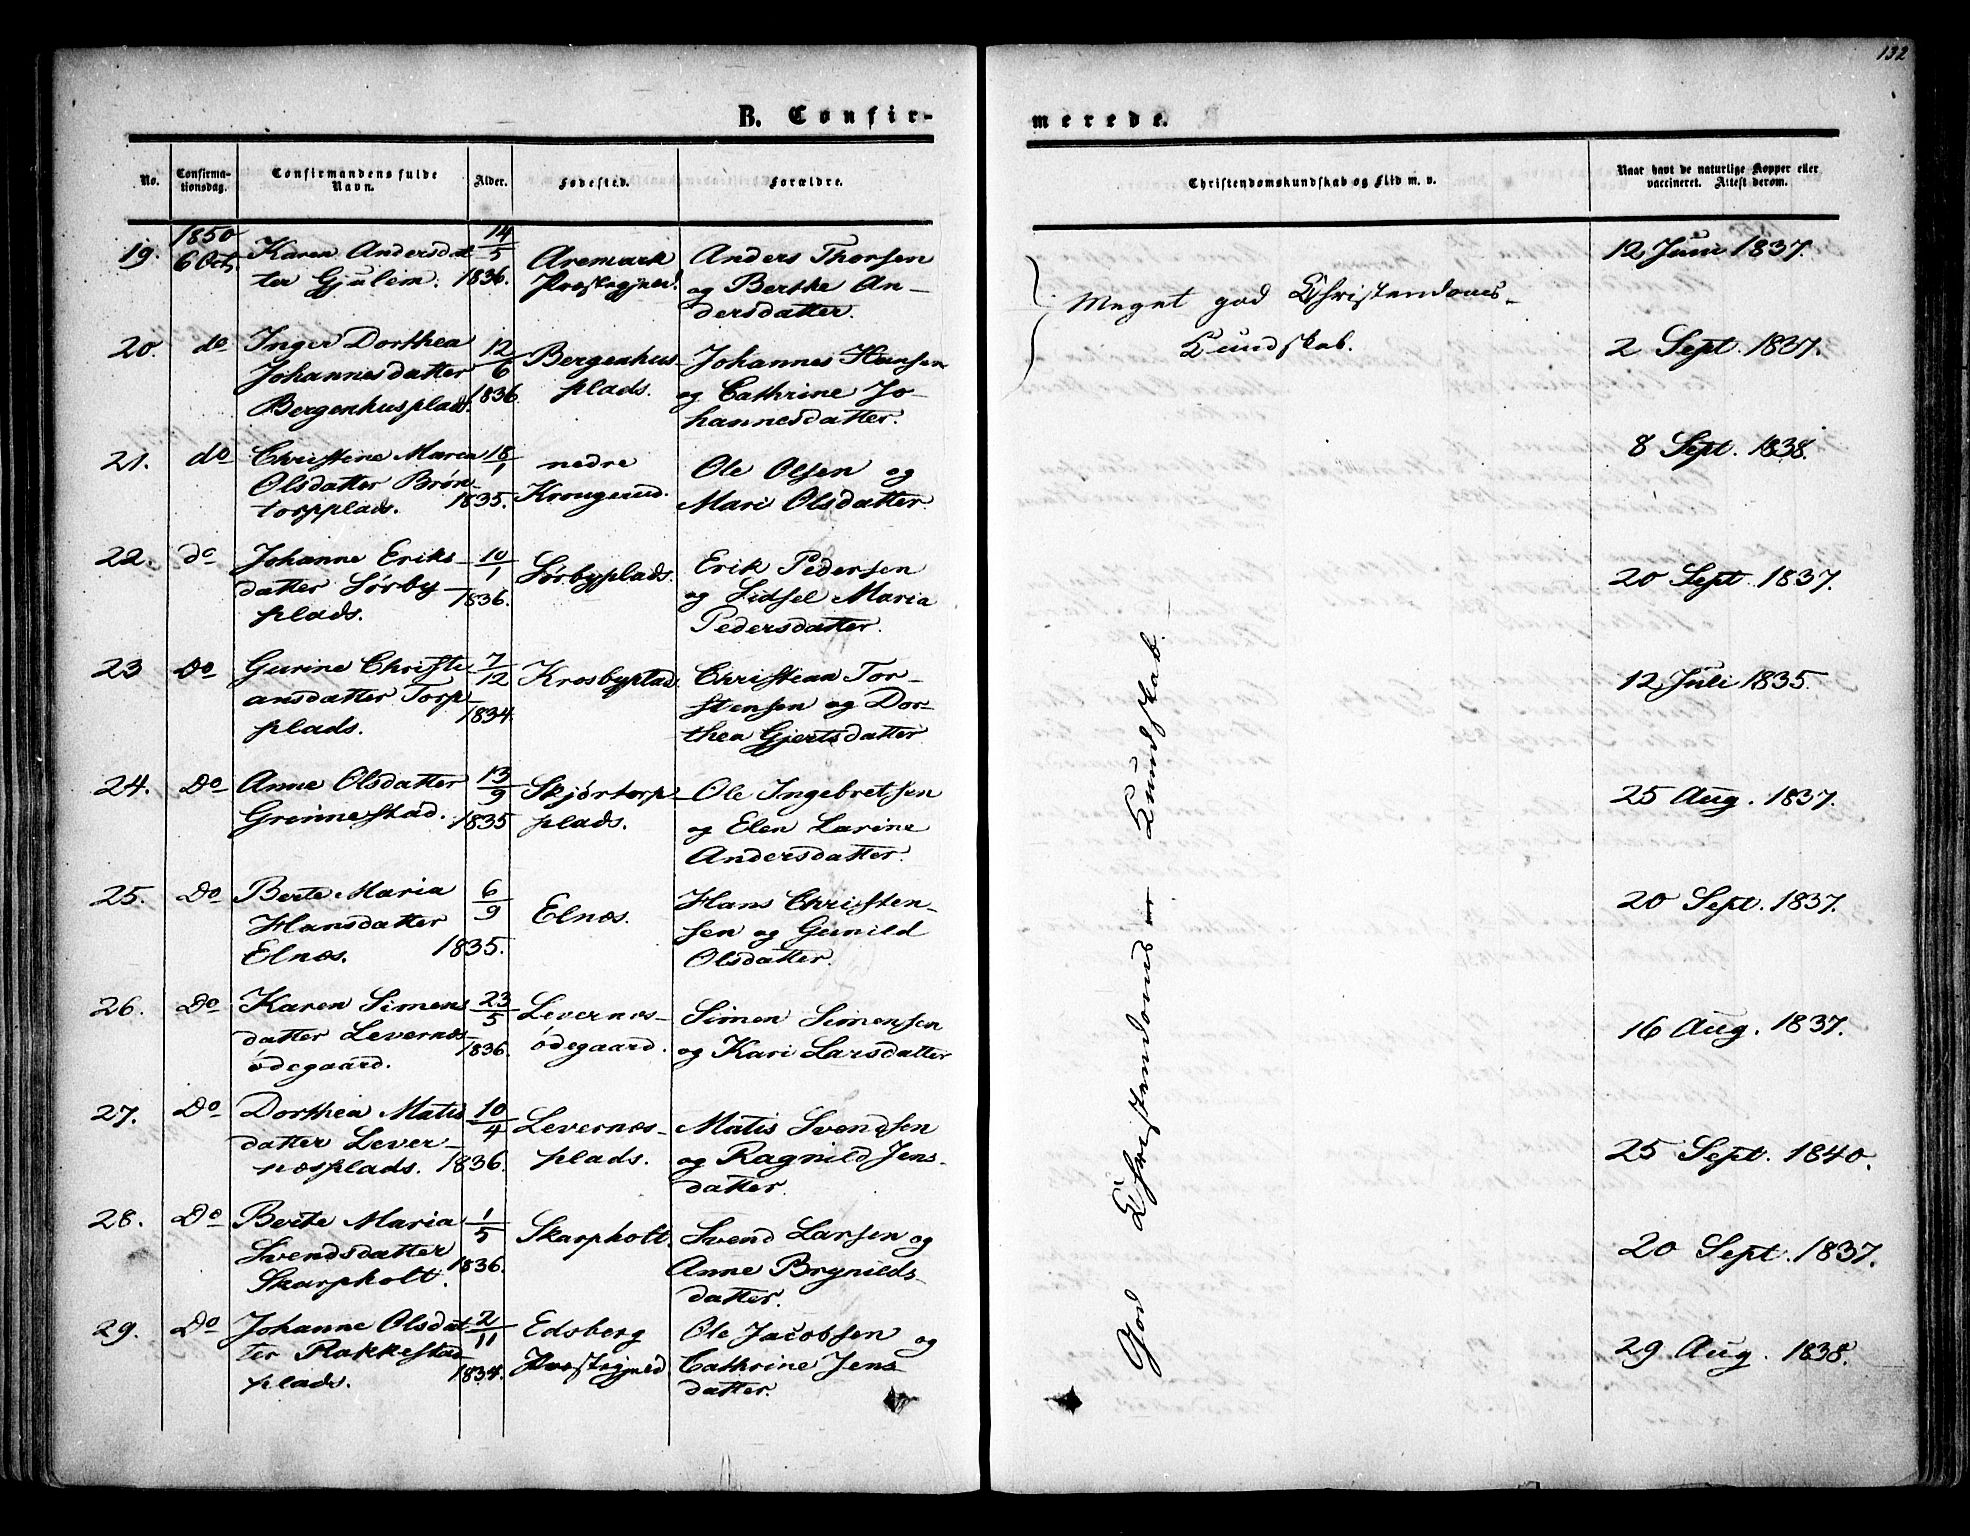 132
B. Confirmerede.
No. Confirmationsdag. Confirmandens fulde Navn. Alder. Fødested. Forældre. Christendomskundskab og Flid m. v. Naar havt de naturlige Kopper eller vaccineret. Attest derom.
19. 1850 6 Oct. Karen Andersdat
ter Gjulem. 14/5 1836. Aremark
Præstegjæld. Anders Thorsen
og Berthe An-
dersdatter. 12 Juni 1837.
Meget god Christendoms-
Kundskab.
20. do Inger Dorthea
Johannesdatter
Bergenhusplads. 12/6 1836 Bergenhus
plads. Johannes Hansen
og Cathrine Jo-
hannesdatter. 2 Sept. 1837.
21. do Christine Maria
Olsdatter Brøn-
torpplads. 18/1 1835. nedre
Krougerud. Ole Olsen og
Mari Olsdatter. 8 Sept. 1838.
22. do Johanne Eriks-
datter Sørby-
plads. 10/1 1836. Sørbyplads. Erik Pedersen
og Sidsel Maria
Pedersdatter. 20 Sept. 1837.
23 Do Gurine Christi
ansdatter Torp-
plads. 7/12 1834. Krosbyplad. Christian Tor-
stensen og Dor-
thea Gjertsdatter 12 Juli 1835.
24. Do Anne Olsdatter
Grinnestad. 13/9 1835 Skjørtorp-
plads. Ole Ingebretsen
og Elen Larine
Andersdatter. 25 Aug. 1837.
25. Do Berte Maria
Hansdatter
Elnæs. 6/9 1835. Elnæs. Hans Christen-
sen og Gunild
Olsdatter. 20 Sept. 1837.
26. Do Karen Simens
datter Levernæs-
ødegaard. 23/5 1836. Levernæs-
ødegaard. Simen Simensen
og Kari Larsdatter 16 Aug. 1837.
27. Do Dorthea Matis
datter Lever-
næsplads. 10/4 1836. Levernæs-
plads. Matis Svendsen
og Ragnild Jens-
datter. 25 Sept. 1840.
28. Do Berte Maria
Svendsdatter
Skarpholt. 1/5 1836. Skarpholt. Svend Larsen og
Anne Brynilds-
datter. 20 Sept. 1837.
29. Do Johanne Olsdat
ter Rakkestad
plads. 2/11 1834. Edsberg
Præstegjæld. Ole Jacobsen og
Cathrine Jens
datter. 29 Aug. 1838.
God Christendoms- Kundskab.